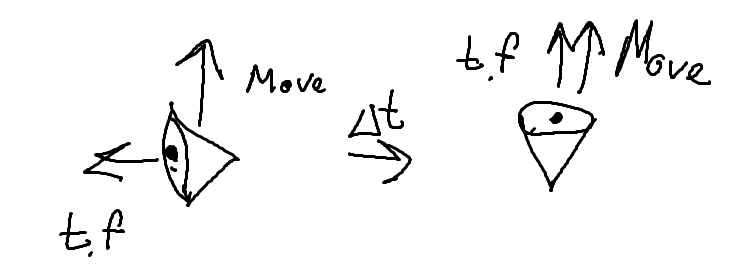 Move
Δt
t.f
t.f
Move